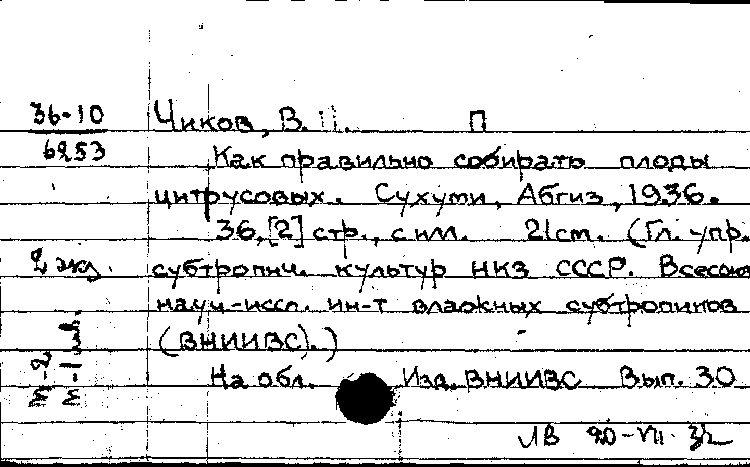 36-10 Чиков, В. П. П
6253 Как правильно собирать плоды
цитрусовых. Сухуми, Абгиз, 1936.
36,[2] стр., с илл. 21 cm. (Гл. упр.
2 экз. субтропич. культур НКЗ СССР. Всесоюз
науч-иссл. ин-т влажных субтропиков
(ВНИИВС).)
На обл. Изд. ВНИИВС Вып. 30